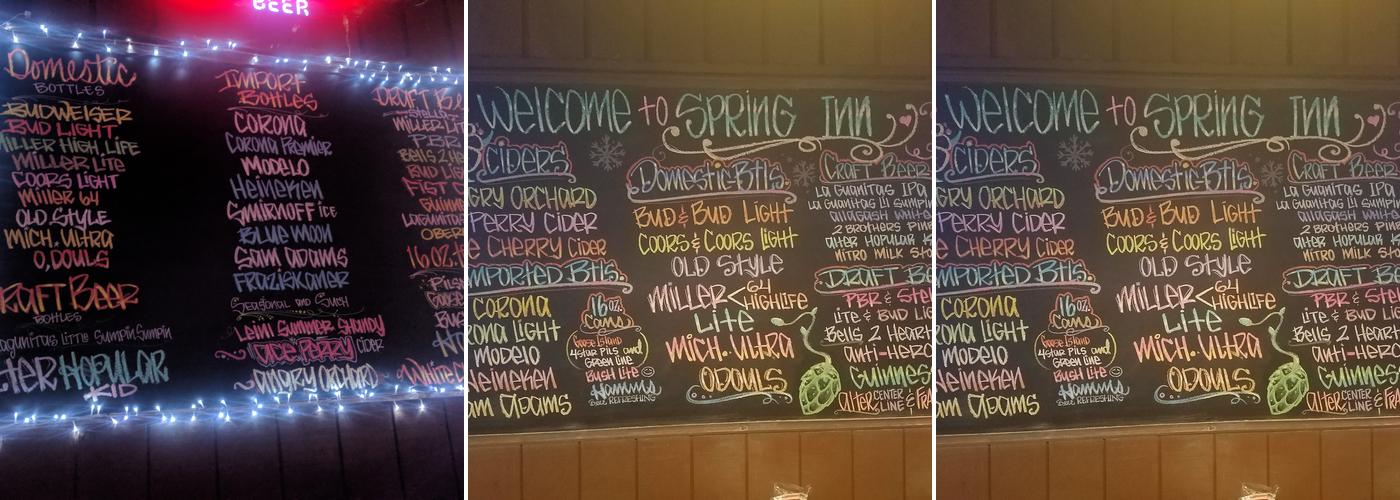 BEER
Domestic
BOTTLES
BUDWEISER
BUD LIGHT
MILLER HIGH LIFE
MILLER LITE
COORS LIGHT
MILLER 64
OLD STYLE
MICH. ULTRA
O'DOULS
CRAFT BEER
BOTTLES
Lagunitas Little Sumpin Sumpin
ALTER HOPULAR
KID
IMPORT
BOTTLES
CORONA
CORONA PREMIER
MODELO
HEINEKEN
SMIRNOFF ICE
BLUE MOON
SAM ADAMS
FRAZISKANER
Seasonal and Such
LEINI SUMMER SHANDY
PERRY CIDER
ANGRY ORCHARD
DRAFT BE
STELLA
MILLER LIT
PBR
BELLS 2 HE
BUD LIG
FIST C
GUINN
LAGUNITAS
OBER
16 OZ.
PILS
GOOSE
WHITE
WELCOME to SPRING INN
CIDERS
GRY ORCHARD
PERRY CIDER
E CHERRY CIDER
IMPORTED BTLS.
CORONA
RONA LIGHT
MODELO
HEINEKEN
AM ADAMS
16 OZ.
CANS
GOOSE ISLAND
4 STAR PILS AND
GREEN LINE
BUSH LITE
HAMMS
BEER REFRESHING
DOMESTIC-BTLS.
BUD & BUD LIGHT
COORS & COORS LIGHT
OLD STYLE
MILLER < 64
HIGHLIFE
LITE
MICH. ULTRA
ODOULS
CRAFT BEER
LA GUANITAS IPA
LA GUANITAS LIL SUMPIN
ALLAGASH WHITE
2 BROTHERS
ALTER HOPULAR K
NITRO MILK S
DRAFT B
PBR & STE
LITE & BUD L
BELLS 2 HEAR
ANTI-HER
GUINNES
ALTER CENTER
LINE &
WELCOME to SPRING INN
CIDERS
GRY ORCHARD
PERRY CIDER
E CHERRY CIDER
MPORTED BTLS.
CORONA
RONA LIGHT
MODELO
HEINEKEN
AM ADAMS
16 OZ.
CANS
GOOSE ISLAND
4 STAR PILS AND
GREEN LINE
BUSH LITE
HAMMS
BEER REFRESHING
DOMESTIC-BTLS.
BUD & BUD LIGHT
COORS & COORS LIGHT
OLD STYLE
MILLER < 64
HIGHLIFE
LITE
MICH. ULTRA
ODOULS
CRAFT BEER
LA GUANITAS IPA
LA GUANITAS LIL SUMPIN
ALLAGASH WHITE
2 BROTHERS
ALTER HOPULAR K
NITRO MILK SH
DRAFT BE
PBR & STE
LITE & BUD LI
BELLS 2 HEART
ANTI-HERO
GUINNES
ALTER CENTER
LINE & FRA